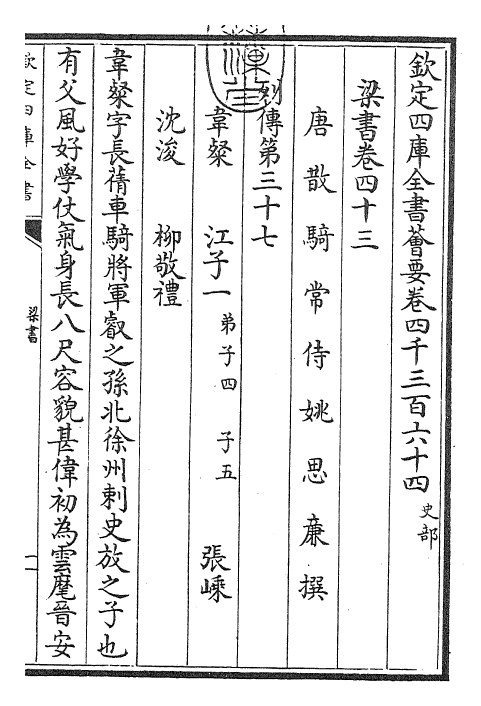 欽定四庫全書薈要卷四千三百六十四 史部
梁書卷四十三
唐散騎常侍姚思廉撰
列傳第三十七
韋粲 江子一 弟子四 子五 張嵊
沈浚 柳敬禮
韋粲字長蒨車騎將軍叡之孫北徐州刺史放之子也
有父風好學仗氣身長八尺容貌甚偉初為雲麾晉安
欽定四庫全書
梁書
一